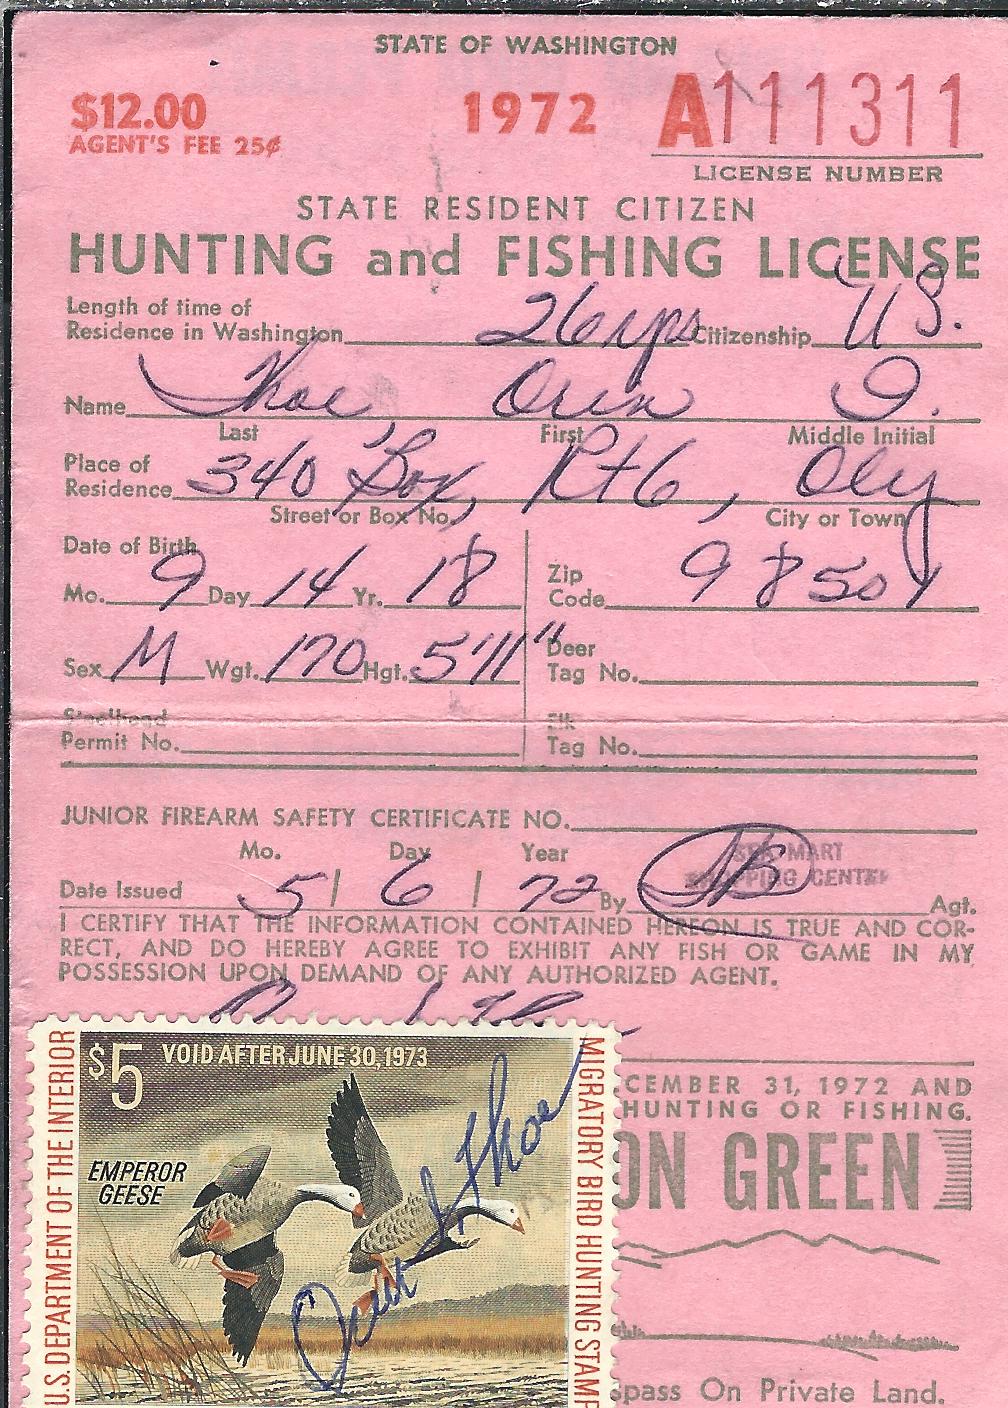 STATE OF WASHINGTON
$12.00 1972 A111311
AGENT'S FEE 25¢ LICENSE NUMBER
STATE RESIDENT CITIZEN
HUNTING and FISHING LICENSE
Length of time of
Residence in Washington 26 yrs Citizenship U S.
Name Thoe Orin I.
Last First Middle Initial
Place of
Residence 340 Box, Rt 6, Oly
Street or Box No. City or Town
Date of Birth
Mo. 9 Day 14 Yr. 18 Zip Code 98501
Sex M Wgt. 170 Hgt. 5'11" Deer Tag No.
Steelhead Elk
Permit No. Tag No.
JUNIOR FIREARM SAFETY CERTIFICATE NO.
Mo. Day Year
MART
SHOPPING CENTER
Date Issued 5/ 6 / 72 By Agt.
I CERTIFY THAT THE INFORMATION CONTAINED HEREON IS TRUE AND COR-
RECT, AND DO HEREBY AGREE TO EXHIBIT ANY FISH OR GAME IN MY
POSSESSION UPON DEMAND OF ANY AUTHORIZED AGENT.
CEMBER 31, 1972 AND
HUNTING OR FISHING.
ON GREEN
spass On Private Land.
U.S. DEPARTMENT OF THE INTERIOR
$5 VOID AFTER JUNE 30, 1973
EMPEROR
GEESE
Orin I Thoe
MIGRATORY BIRD HUNTING STAMP